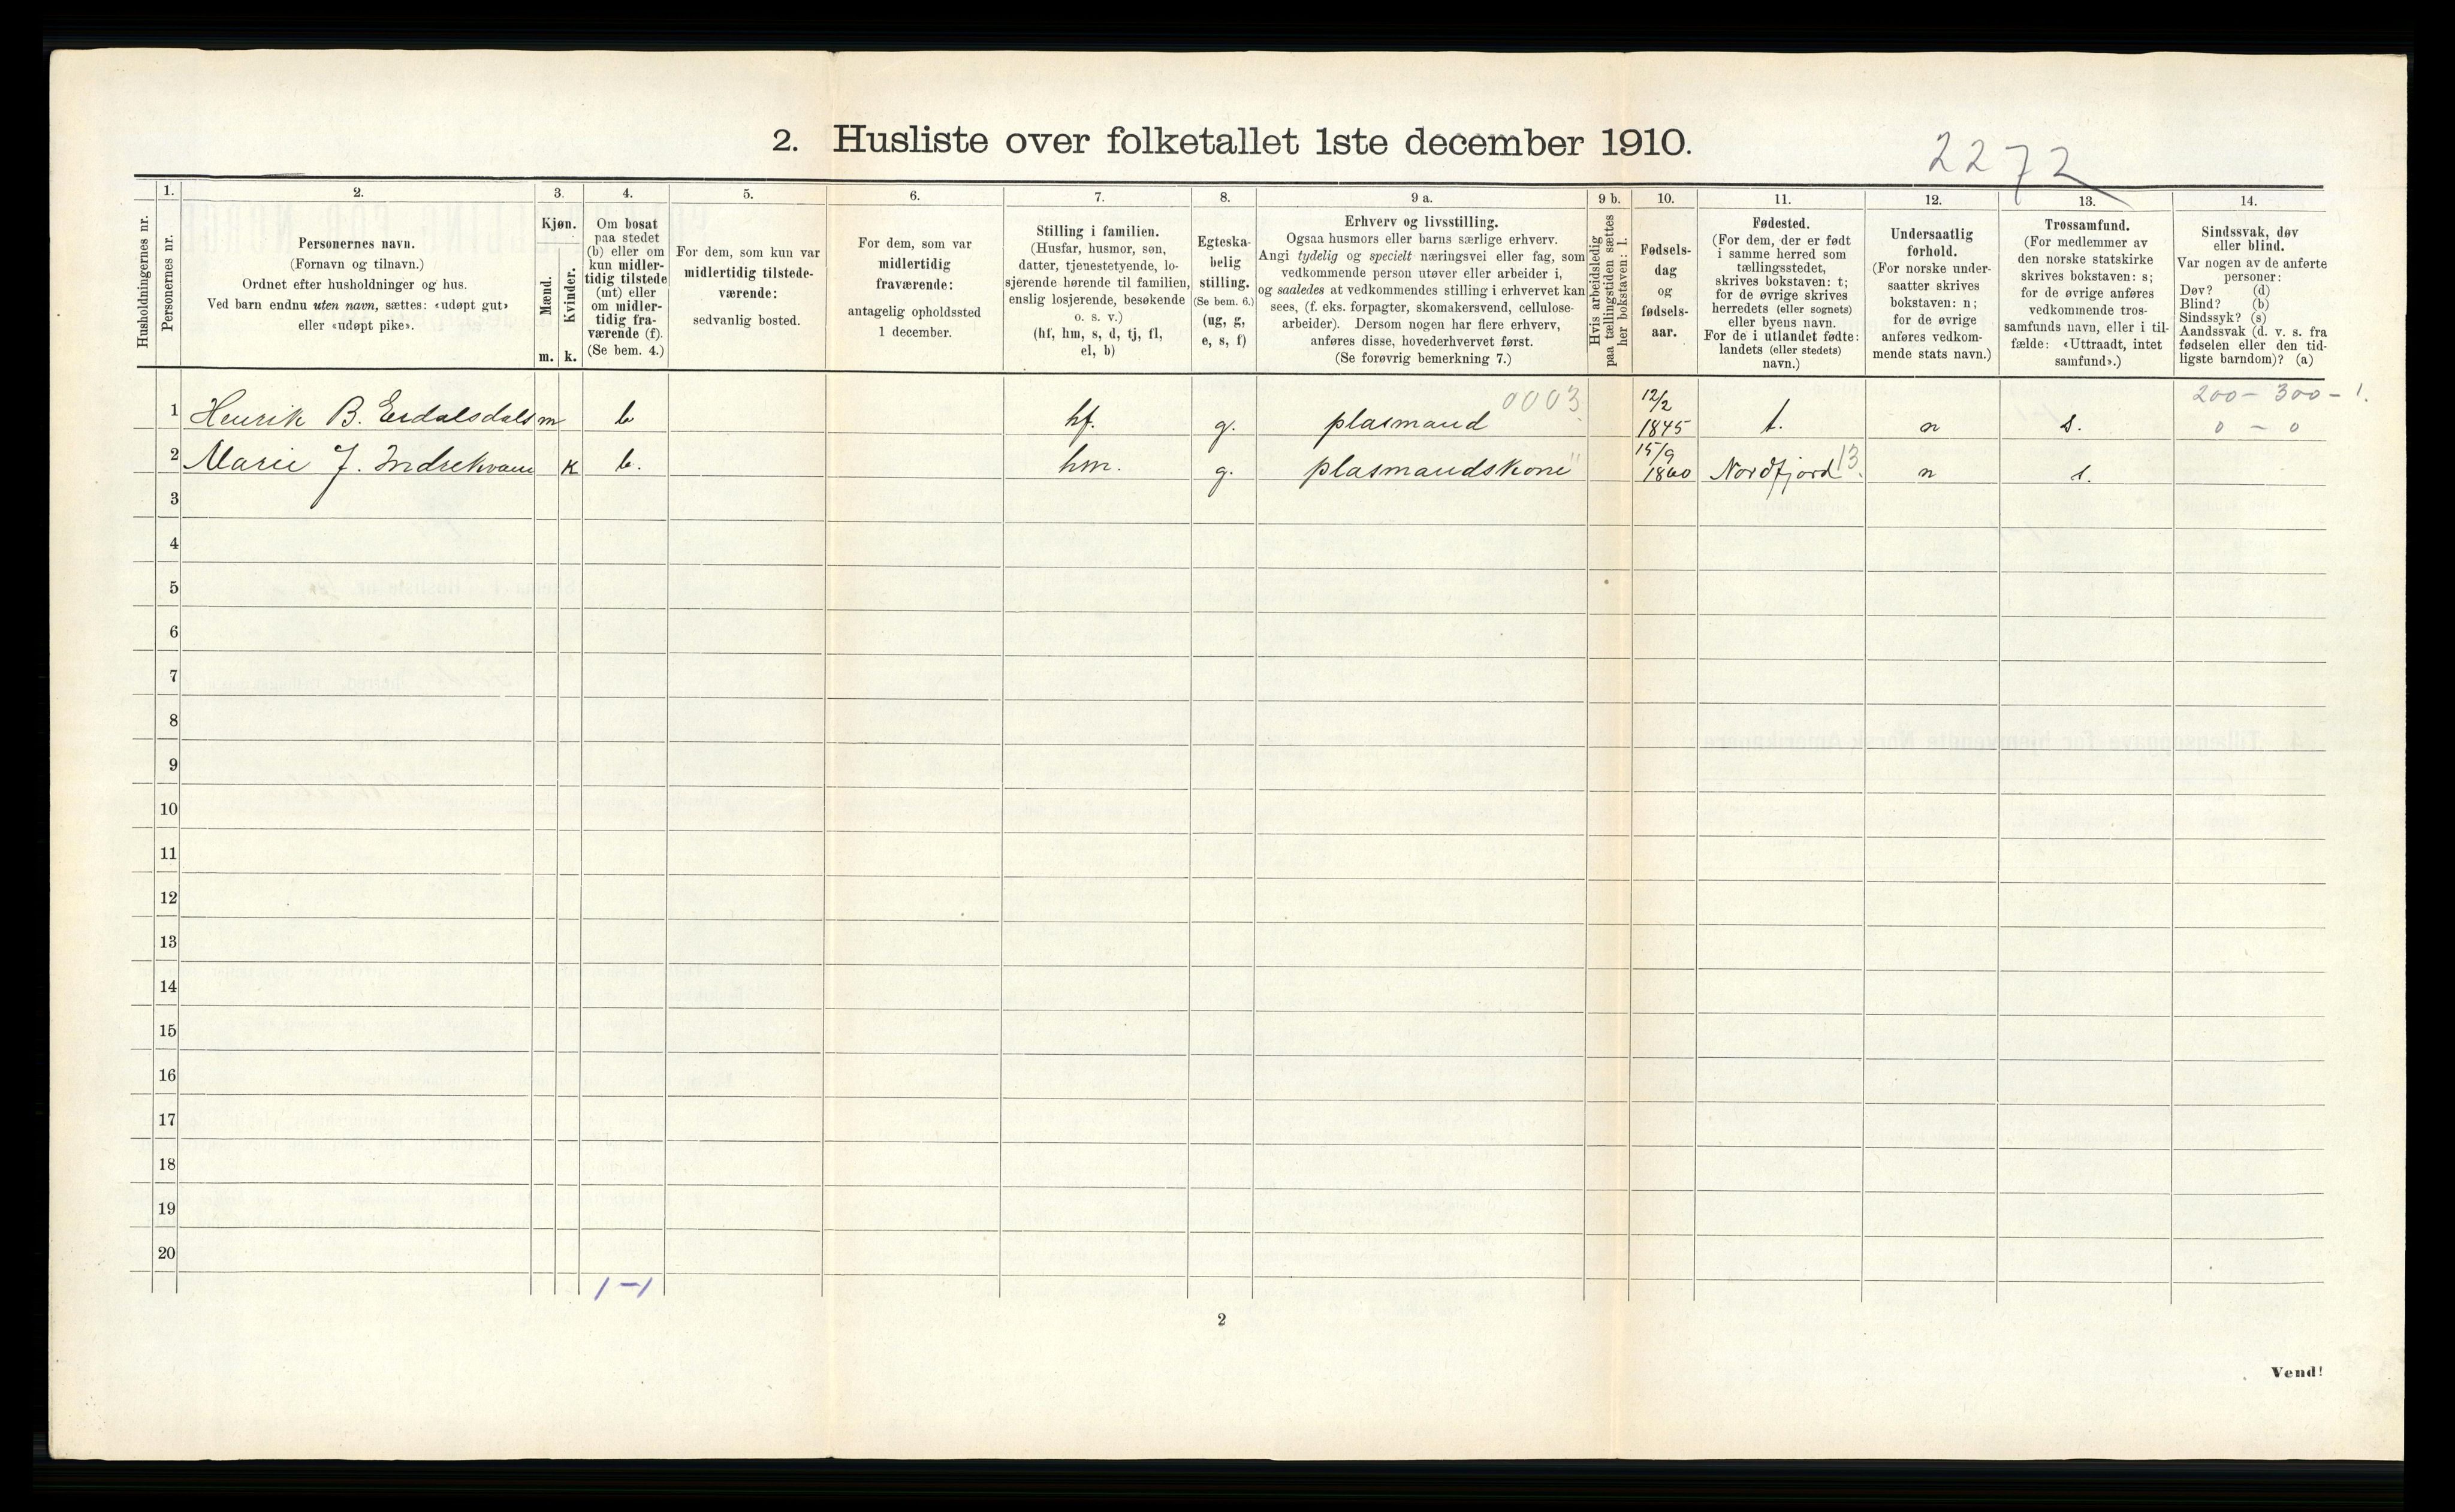 2. Husliste over folketallet 1ste december 1910.
2272
Husholdningernes nr.
1.
Personernes nr.
2.
Personernes navn.
(Fornavn og tilnavn.)
Ordnet efter husholdninger og hus.
Ved barn endnu uten navn, sættes: «udøpt gut»
eller «udøpt pike».
3.
Kjøn.
Mænd.
Kvinder.
m. k.
4.
Om bosat
paa stedet
(b) eller om
kun midler-
tidig tilstede
(mt) eller
om midler-
tidig fra-
værende (f).
(Se bem. 4.)
5.
For dem, som kun var
midlertidig tilstede-
værende:
sedvanlig bosted.
6.
For dem, som var
midlertidig
fraværende:
antagelig opholdssted
1 december.
7.
Stilling i familien.
(Husfar, husmor, søn,
datter, tjenestetyende, lo-
sjerende hørende til familien,
enslig losjerende, besøkende
o. s. v.)
(hf, hm, s, d, tj, fl,
el, b)
8.
Egteska-
belig
stilling.
(Se bem. 6.)
(ug, g,
e, s, f)
9 a.
Erhverv og livsstilling.
Ogsaa husmors eller barns særlige erhverv.
Angi tydelig og specielt næringsvei eller fag, som
vedkommende person utøver eller arbeider i,
og saaledes at vedkommendes stilling i erhvervet kan
sees, (f. eks. forpagter, skomakersvend, cellulose-
arbeider). Dersom nogen har flere erhverv,
anføres disse, hovederhvervet først.
(Se forøvrig bemerkning 7.)
9 b.
Hvis arbeidsledig
paa tællingstiden sættes
her bokstaven: l.
10.
Fødsels-
dag
og
fødsels-
aar.
11.
Fødested.
(For dem, der er født
i samme herred som
tællingsstedet,
skrives bokstaven: t;
for de øvrige skrives
herredets (eller sognets)
eller byens navn.
For de i utlandet fødte:
landets (eller stedets)
navn.)
12.
Undersaatlig
forhold.
(For norske under-
saatter skrives
bokstaven: n;
for de øvrige
anføres vedkom-
mende stats navn.)
13.
Trossamfund.
(For medlemmer av
den norske statskirke
skrives bokstaven: s;
for de øvrige anføres
vedkommende tros-
samfunds navn, eller i til-
fælde: «Uttraadt, intet
samfund».)
14.
Sindssvak, døv
eller blind.
Var nogen av de anførte
personer:
Døv? (d)
Blind? (b)
Sindssyk? (s)
Aandssvak (d. v. s. fra
fødselen eller den tid-
ligste barndom)? (a)
1 Henrik B. Erdalsdals m b hf. g. plasmand 0003 12/2 1845 t. n s. 200 – 300 – 1.
0 – 0
2 Marie J. Indrekvam k b. hm. g. plasmandskone " 15/9 1860 Nordfjord 13. n s.
3
4
5
6
7
8
9
10
11
12
13
14
15
16
17
18
19
20
1 – 1
2
Vend!